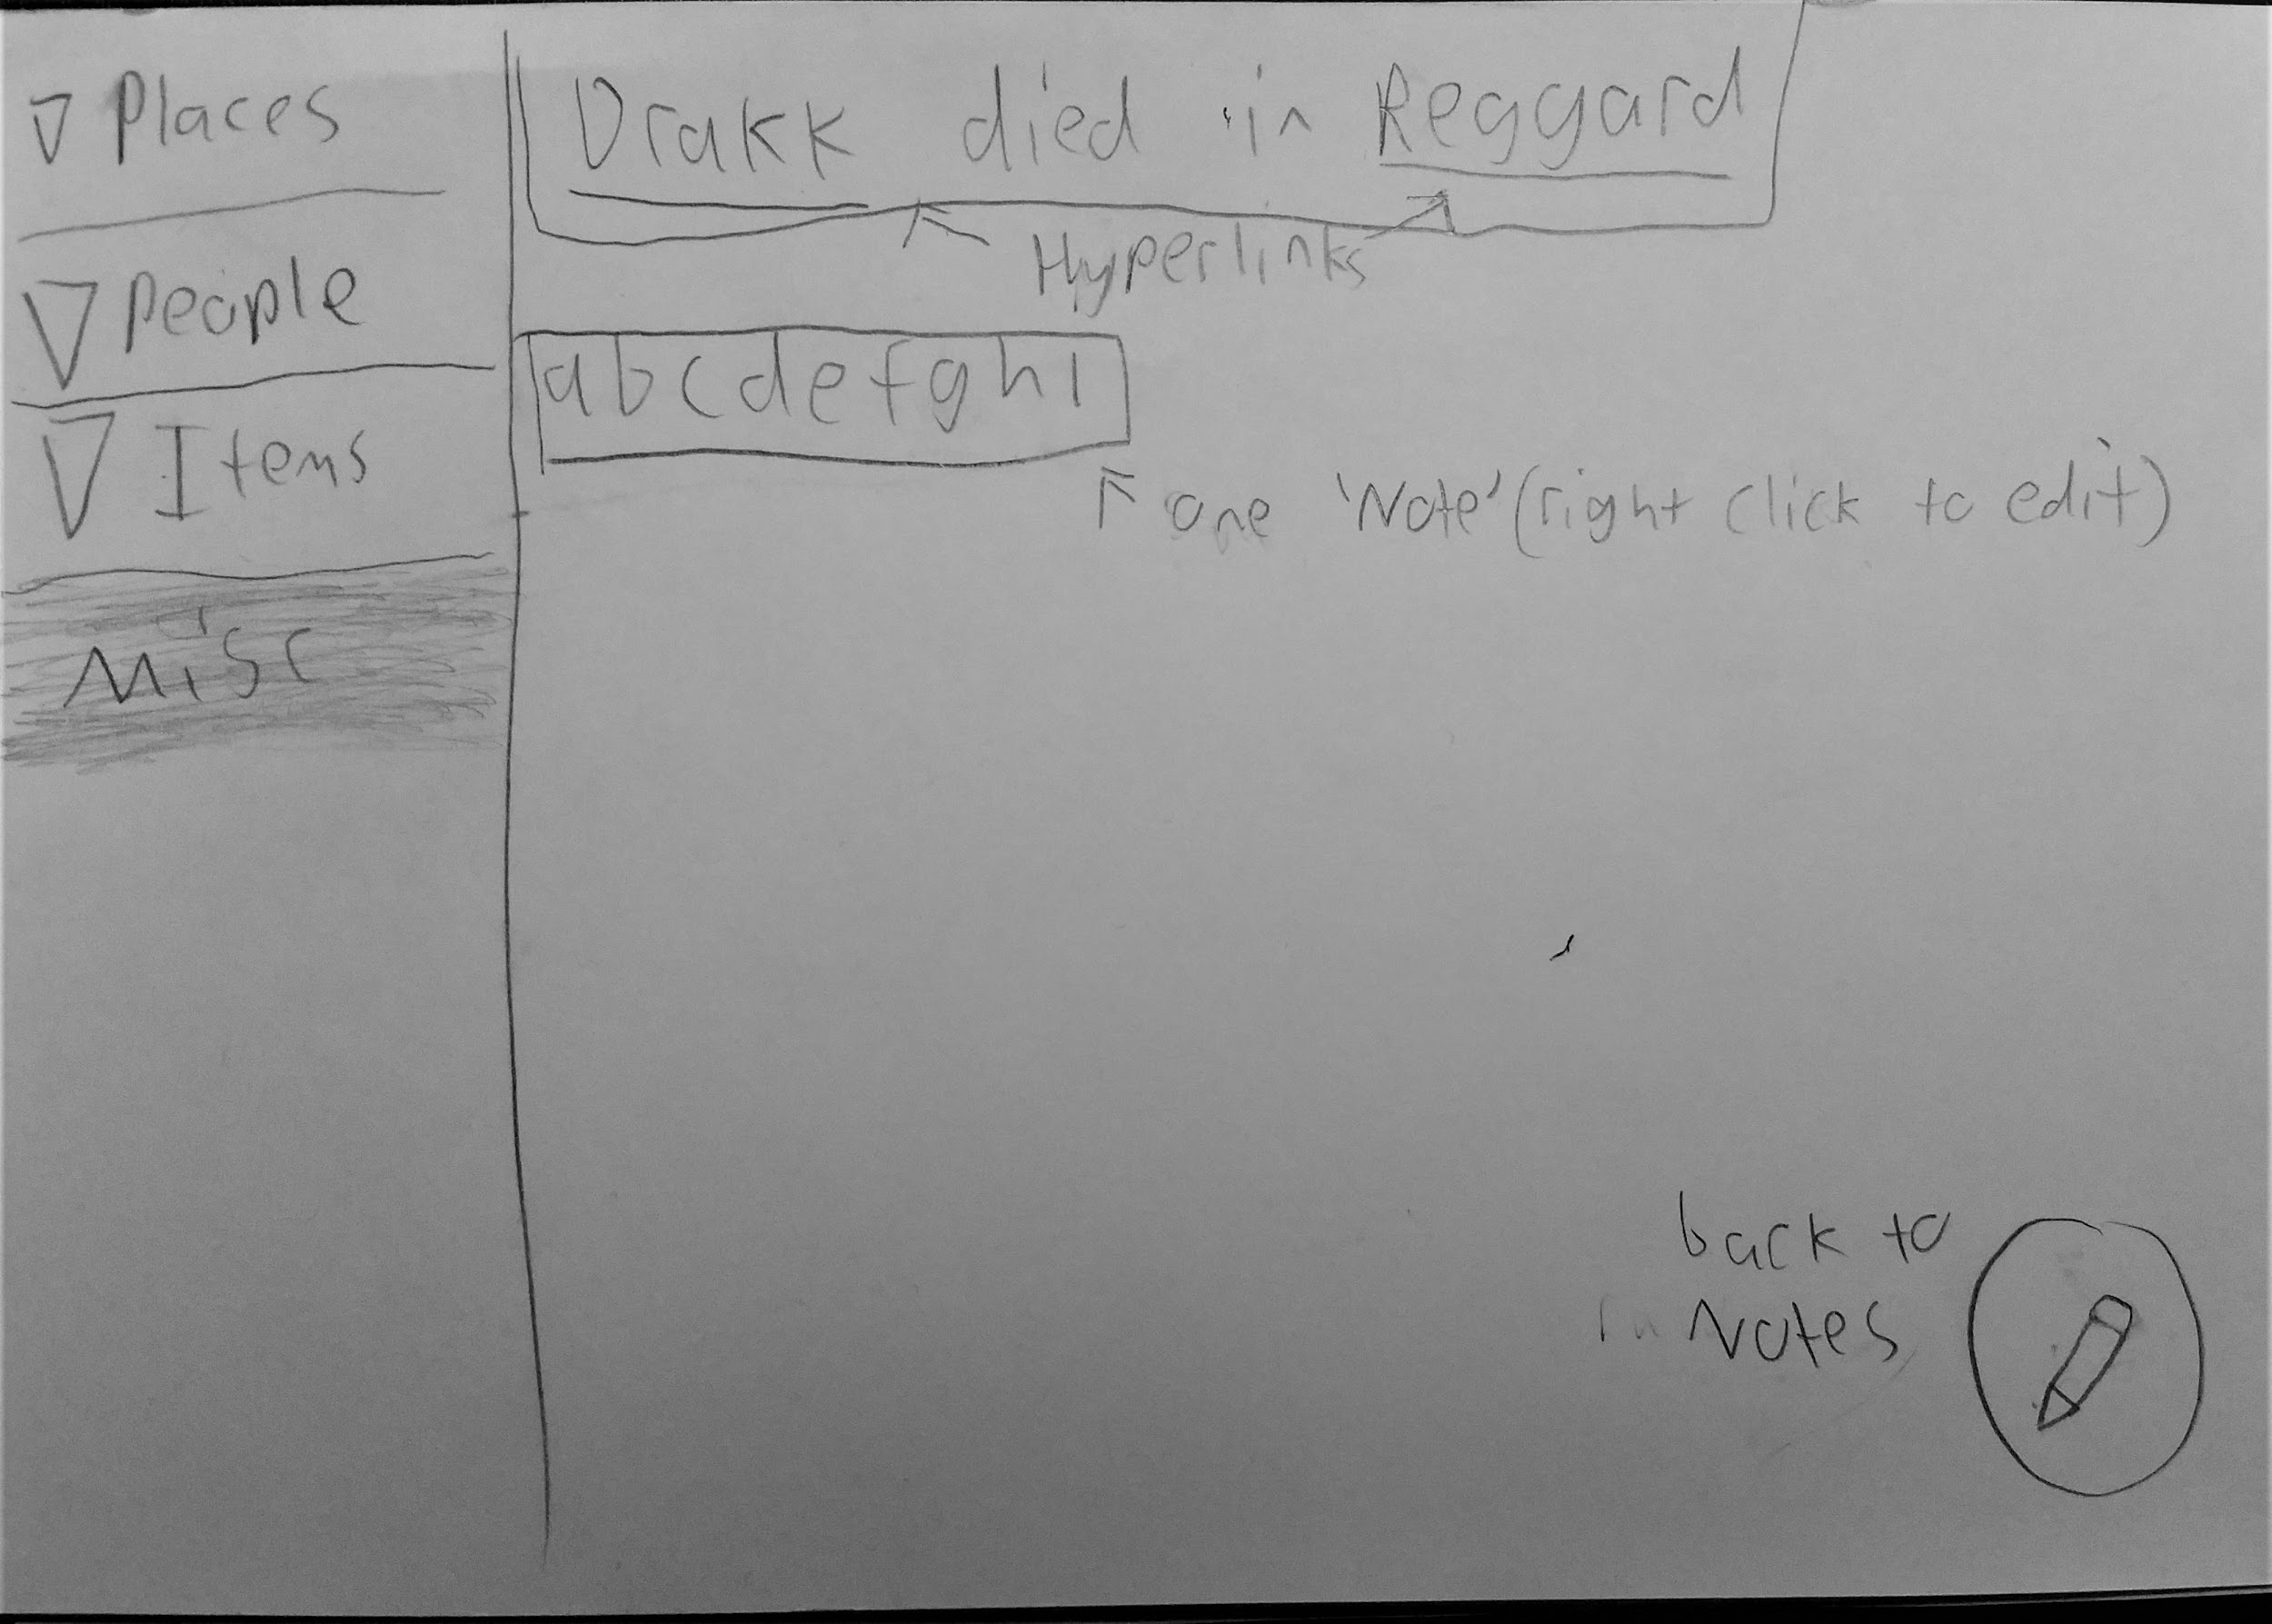 Places
People
Items
Misc
Drakk died in Reggard
Hyperlinks
abcdefghi
one 'Note' (right click to edit)
back to
Notes